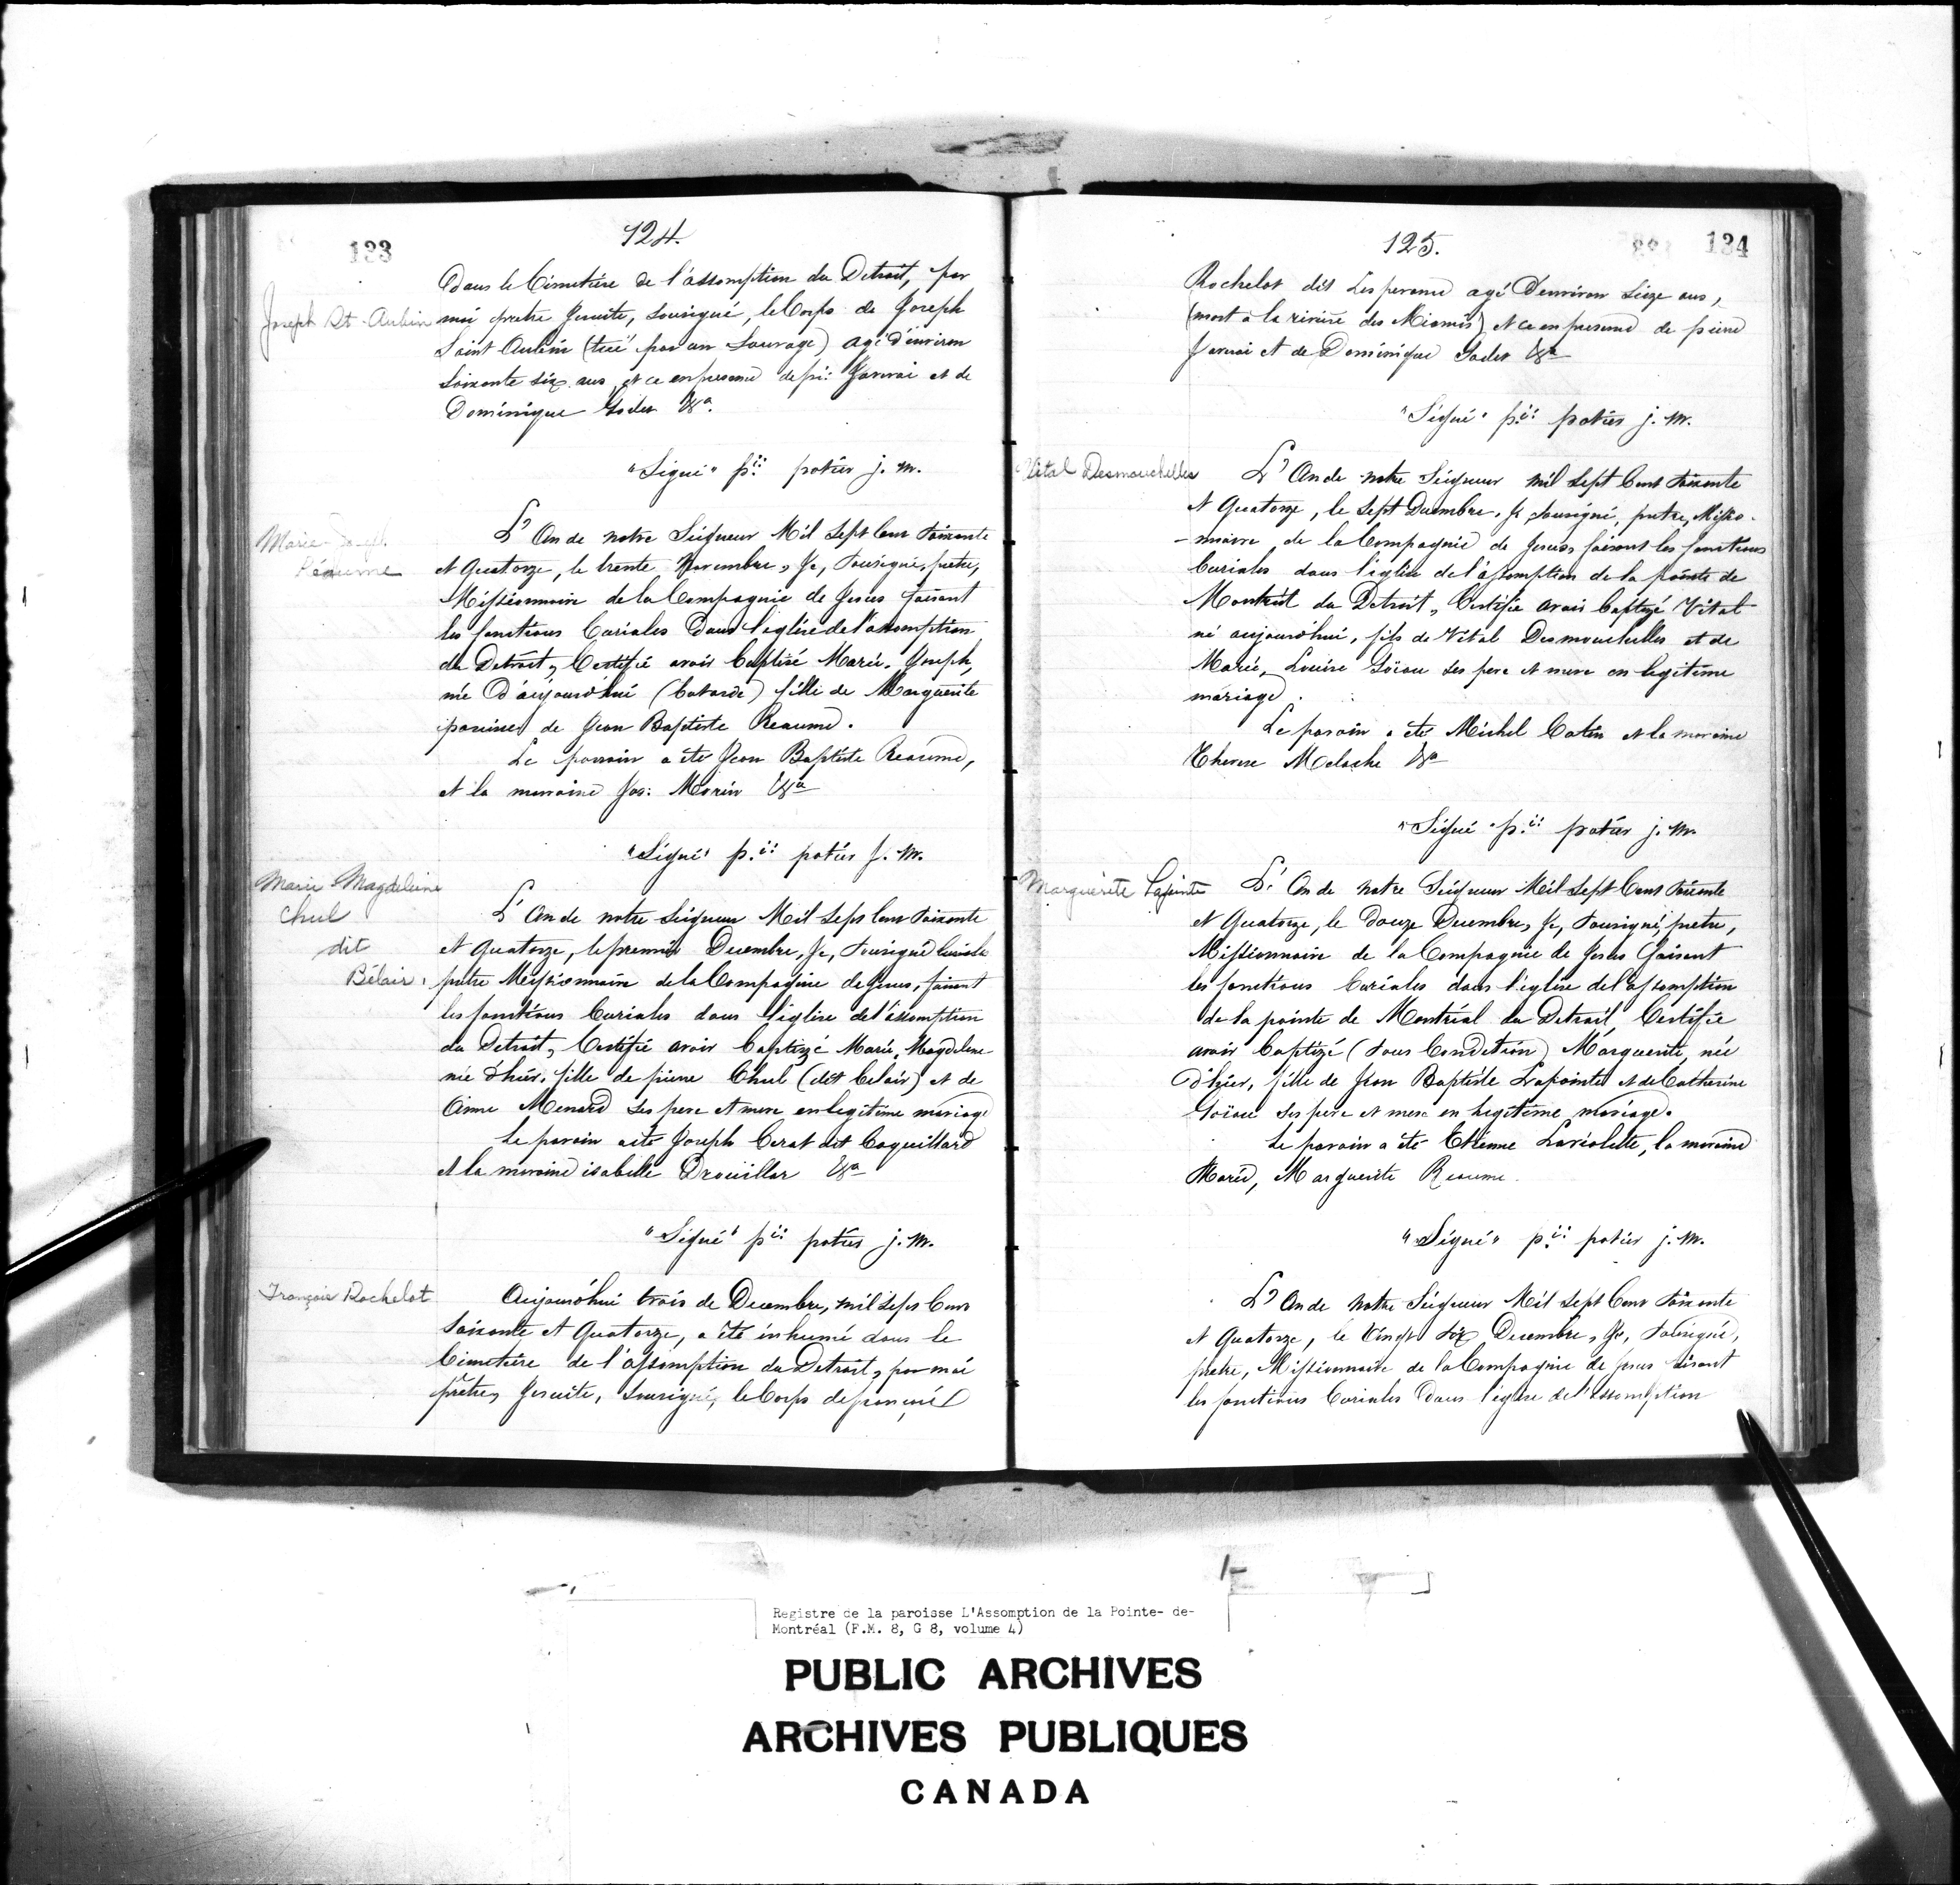 133
124.
Dans le Cimetière de l'assomption du Detroit, par
Joseph St-Aubin
moi pretre Jesuite, sousigné, le Corps de Joseph
Saint Aubin (tué par un Sauvage) agé d'environ
Soixante six ans, et ce en presence de pre: Janvai et de
Dominique Godet &a.
"Signé" p.ii potier j. m.
Marie-Joseph
Réaume
L'An de notre Seigneur Mil Sept Cent Soixante
et Quatorze, le trente Novembre, Je, Sousigné, pretre,
Missionnaire de la Compagnie de Jesus faisant
les fonctions Curiales dans l'eglise de l'assomption
du Detroit, Certifie avoir Baptisé Marie, Joseph,
née D'aujourd'hui (batarde) fille de Marguerite
panise de Jean Baptiste Reaume.
Le parrain a été Jean Baptiste Reaume,
et la marraine Jos: Morin &a
"Signé" p.ii potier j. m.
Marie Magdeleine
Chul
dit
Bélair.
L'An de notre Seigneur Mil Sept Cent Soixante
et Quatorze, le premier Decembre, Je, Sousigné
pretre Missionnaire de la Compagnie de Jesus, faisant
les fonctions Curiales dans l'eglise de l'assomption
du Detroit, Certifie avoir baptizé Marie, Magdelene
née d'hier, fille de pierre Chul (dit belair) et de
Anne Menard ses pere et mere en legitime mariage
Le parain a été Joseph Cerat dit Coquillard
et la maraine isabelle Drouillar &a
"Signé" p.ii potier j. m.
François Rochelot
Aujourd'hui trois de Decembre, mil Sept Cent
Soixante et Quatorze, a été inhumé dans le
Cimetière de l'assomption du Detroit, par moi
prêtre, Jesuite, Sousigné, le Corps de françois
125.
134
Rochelot dit Lesperance agé D'environ Seize ans,
(mort à la rivière des Miamis) et ce en presence de pierre
Janvai et de Dominique Godet &a
"Signé" p.ii potier j. m.
Vital Desmouchelles
L'An de notre Seigneur mil Sept Cent Soixante
et Quatorze, le Sept Decembre, Je Sousigné, pretre, Missio-
-nnaire de la Compagnie de Jesus, faisant les fonctions
Curiales dans l'eglise de l'assomption de la pointe de
Montreal du Detroit, Certifie avoir baptizé Vital
né aujourd'hui, fils de Vital Desmouchelles et de
Marie, Louise Goïau ses pere et mere en legitime
mariage.
Le parain a été Michel Catin et la maraine
Therese Meloche &a
"Signé" p.ii potier j. m.
Marguerite Lapointe
L'An de notre Seigneur Mil Sept Cent Soixante
et Quatorze, le Douze Decembre, Je, Sousigné, pretre,
Missionnaire de la Compagnie de Jesus faisant
les fonctions Curiales dans l'eglise de l'assomption
de la pointe de Montréal du Detroit, Certifie
avoir baptizé (sous Condition) Marguerite, née
D'hier, fille de Jean Baptiste Lapointe et de Catherine
Goïau ses pere et mere en legitime mariage.
Le parain a été Etienne Laviolette, la maraine
Marie, Marguerite Reaume.
"Signé" p.ii potier j. m.
L'An de notre Seigneur Mil Sept Cent Soixante
et Quatorze, le Vingt Six Decembre, Je, Sousigné,
pretre, Missionnaire de la Compagnie de Jesus faisant
les fonctions Curiales dans l'eglise de l'assomption
Registre de la paroisse L'Assomption de la Pointe- de-
Montréal (F.M. 8, G 8, volume 4)
PUBLIC ARCHIVES
ARCHIVES PUBLIQUES
CANADA